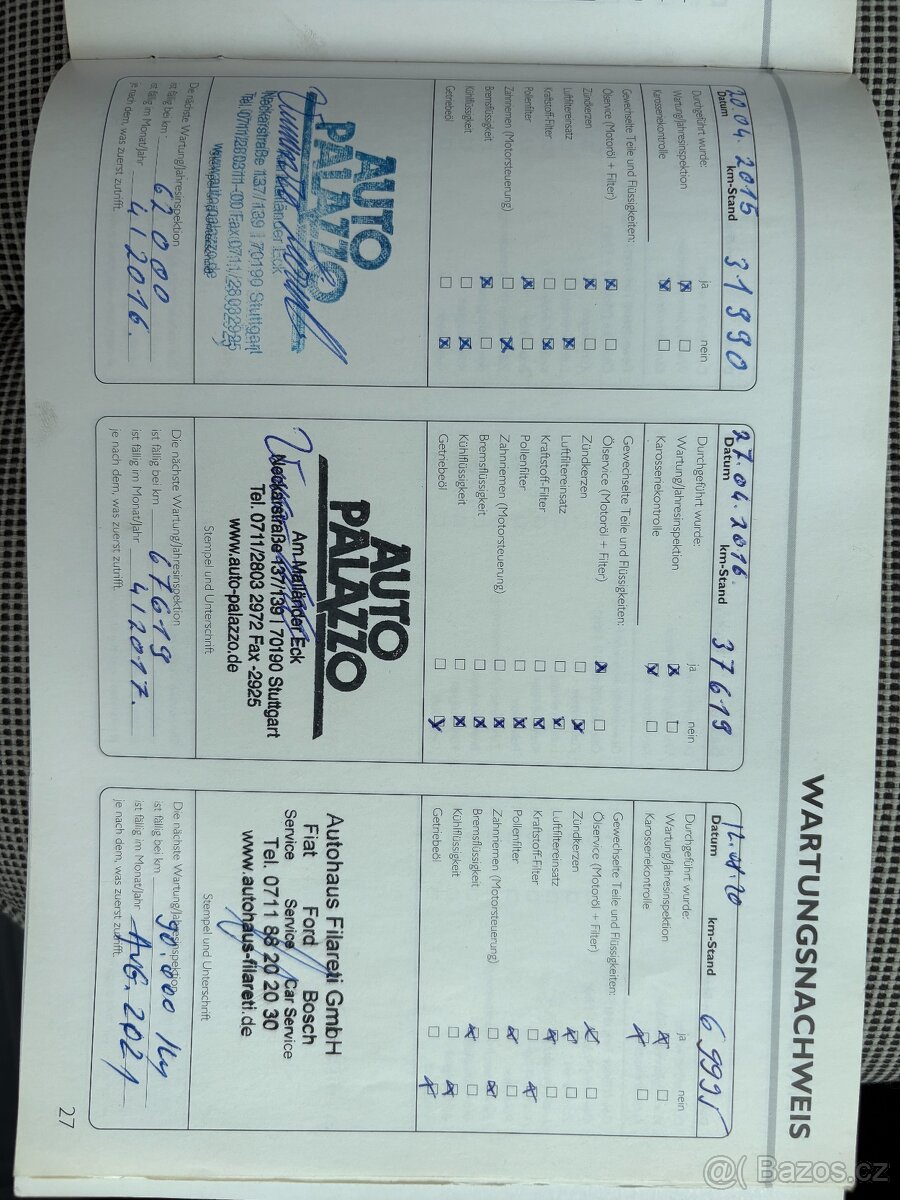 WARTUNGSNACHWEIS
20.04.2015 31990
Datum km-Stand
Durchgeführt wurde: ja nein
Wartung/Jahresinspektion
Karosseriekontrolle
Gewechselte Teile und Flüssigkeiten:
Ölservice (Motoröl + Filter)
Zündkerzen
Luftfiltereinsatz
Kraftstoff-Filter
Pollenfilter
Zahnriemen (Motorsteuerung)
Bremsflüssigkeit
Kühlflüssigkeit
Getriebeöl
AUTO
PALAZZO
Neckarstraße 137/139 | 70190 Stuttgart
www.auto-palazzo.de
Die nächste Wartung/Jahresinspektion
ist fällig bei km 62000
ist fällig im Monat/Jahr 4/2016.
je nach dem, was zuerst zutrifft.
27.04.2016. 37619
Datum km-Stand
Durchgeführt wurde: ja nein
Wartung/Jahresinspektion
Karosseriekontrolle
Gewechselte Teile und Flüssigkeiten:
Ölservice (Motoröl + Filter)
Zündkerzen
Luftfiltereinsatz
Kraftstoff-Filter
Pollenfilter
Zahnriemen (Motorsteuerung)
Bremsflüssigkeit
Kühlflüssigkeit
Getriebeöl
AUTO
PALAZZO
Am Mailänder Eck
Neckarstraße 137/139 | 70190 Stuttgart
Tel. 0711/2803 2972 Fax -2925
www.auto-palazzo.de
Stempel und Unterschrift
Die nächste Wartung/Jahresinspektion
ist fällig bei km 67619
ist fällig im Monat/Jahr 4/2017.
je nach dem, was zuerst zutrifft.
69995
Datum km-Stand
Durchgeführt wurde: ja nein
Wartung/Jahresinspektion
Karosseriekontrolle
Gewechselte Teile und Flüssigkeiten:
Ölservice (Motoröl + Filter)
Zündkerzen
Luftfiltereinsatz
Kraftstoff-Filter
Pollenfilter
Zahnriemen (Motorsteuerung)
Bremsflüssigkeit
Kühlflüssigkeit
Getriebeöl
Autohaus Filareti GmbH
Fiat Ford Bosch
Service Service Car Service
Tel. 0711 88 20 20 30
www.autohaus-filareti.de
Stempel und Unterschrift
Die nächste Wartung/Jahresinspektion
ist fällig bei km 90.000
ist fällig im Monat/Jahr AUG. 2021
je nach dem, was zuerst zutrifft.
27
@( Bazos.cz